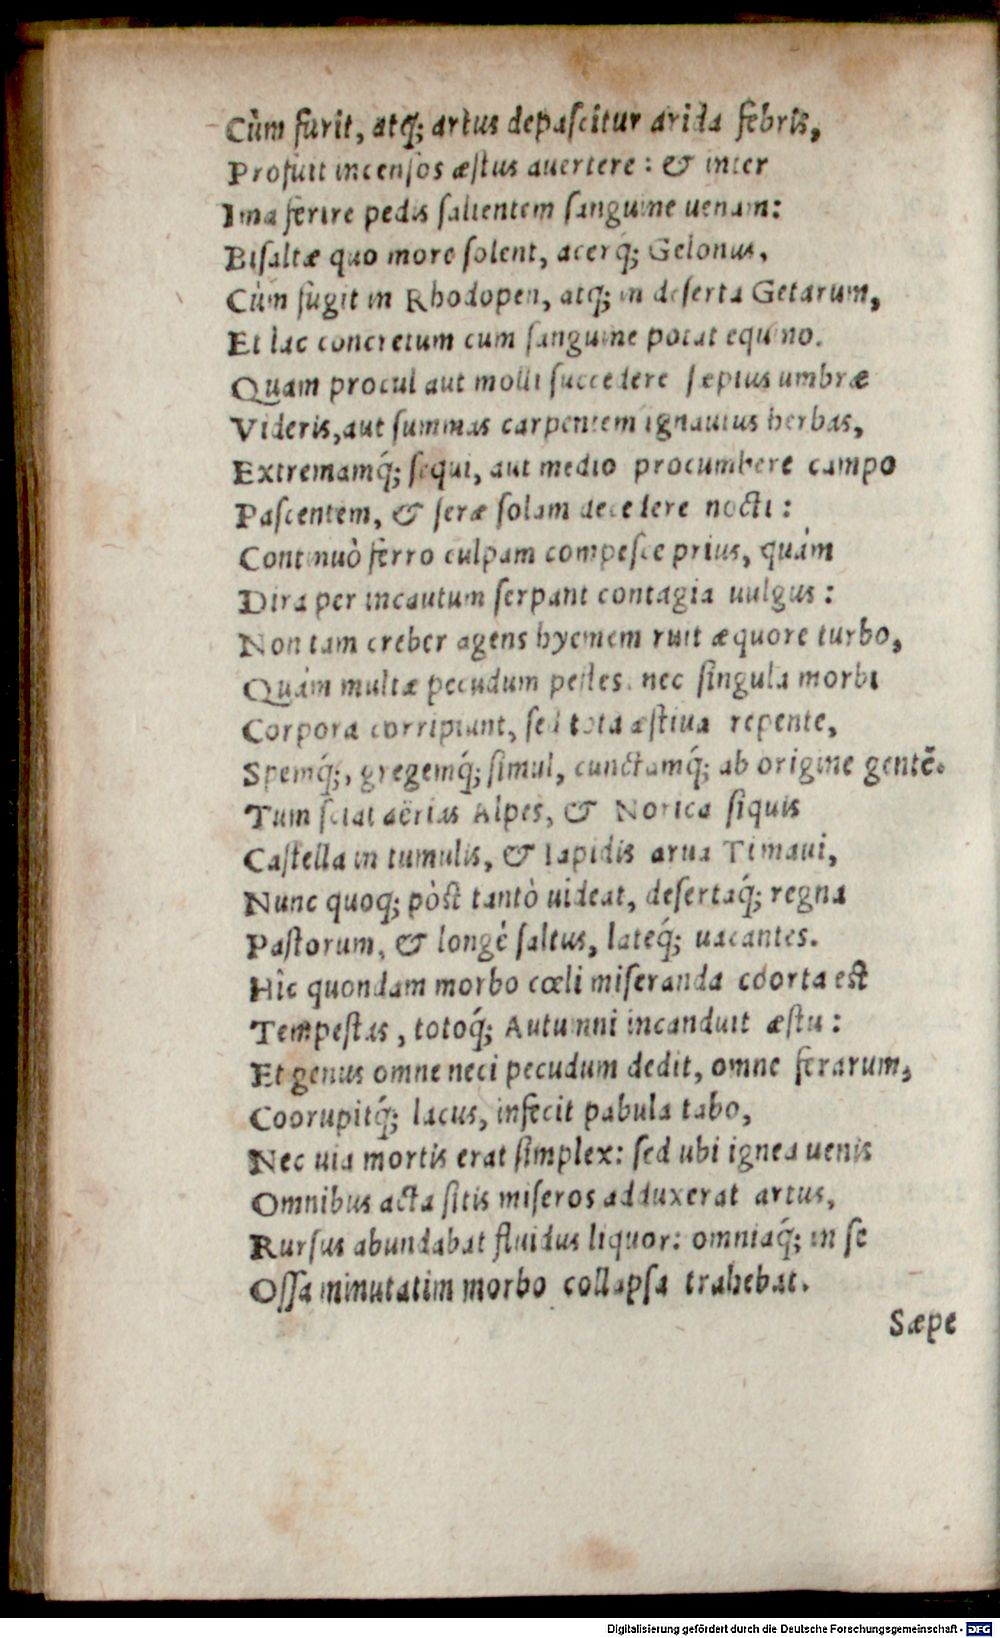 Cùm furit, atq́; artus depascitur arida febris,
Profuit incensos æstus auertere: & inter
Ima ferire pedis salientem sanguine uenam:
Bisaltæ quo more solent, acerq́; Gelonus,
Cùm fugit in Rhodopen, atq́; in deserta Getarum,
Et lac concretum cum sanguine potat equino.
Quam procul aut molli succedere sæpius umbræ
Videris, aut summas carpentem ignauius herbas,
Extremamq́; sequi, aut medio procumbere campo
Pascentem, & seræ solam decedere nocti:
Continuò ferro culpam compesce prius, quàm
Dira per incautum serpant contagia uulgus:
Non tam creber agens hyemem ruit æquore turbo,
Quàm multæ pecudum pestes. nec singula morbi
Corpora corripiunt, sed tota æstiua repente,
Spemq́;, gregemq́; simul, cunctamq́; ab origine gentē.
Tum sciat aërias Alpes, & Norica siquis
Castella in tumulis, & Iapidis arua Timaui,
Nunc quoq; pòst tantò uideat, desertaq́; regna
Pastorum, & longè saltus, lateq́; uacantes.
Hîc quondam morbo cœli miseranda coorta est
Tempestas, totoq́; Autumni incanduit æstu:
Et genus omne neci pecudum dedit, omne ferarum,
Coorupitq́; lacus, infecit pabula tabo,
Nec uia mortis erat simplex: sed ubi ignea uenis
Omnibus acta sitis miseros adduxerat artus,
Rursus abundabat fluidus liquor: omniaq́; in se
Ossa minutatim morbo collapsa trahebat.
Sæpe
Digitalisierung gefördert durch die Deutsche Forschungsgemeinschaft - DFG